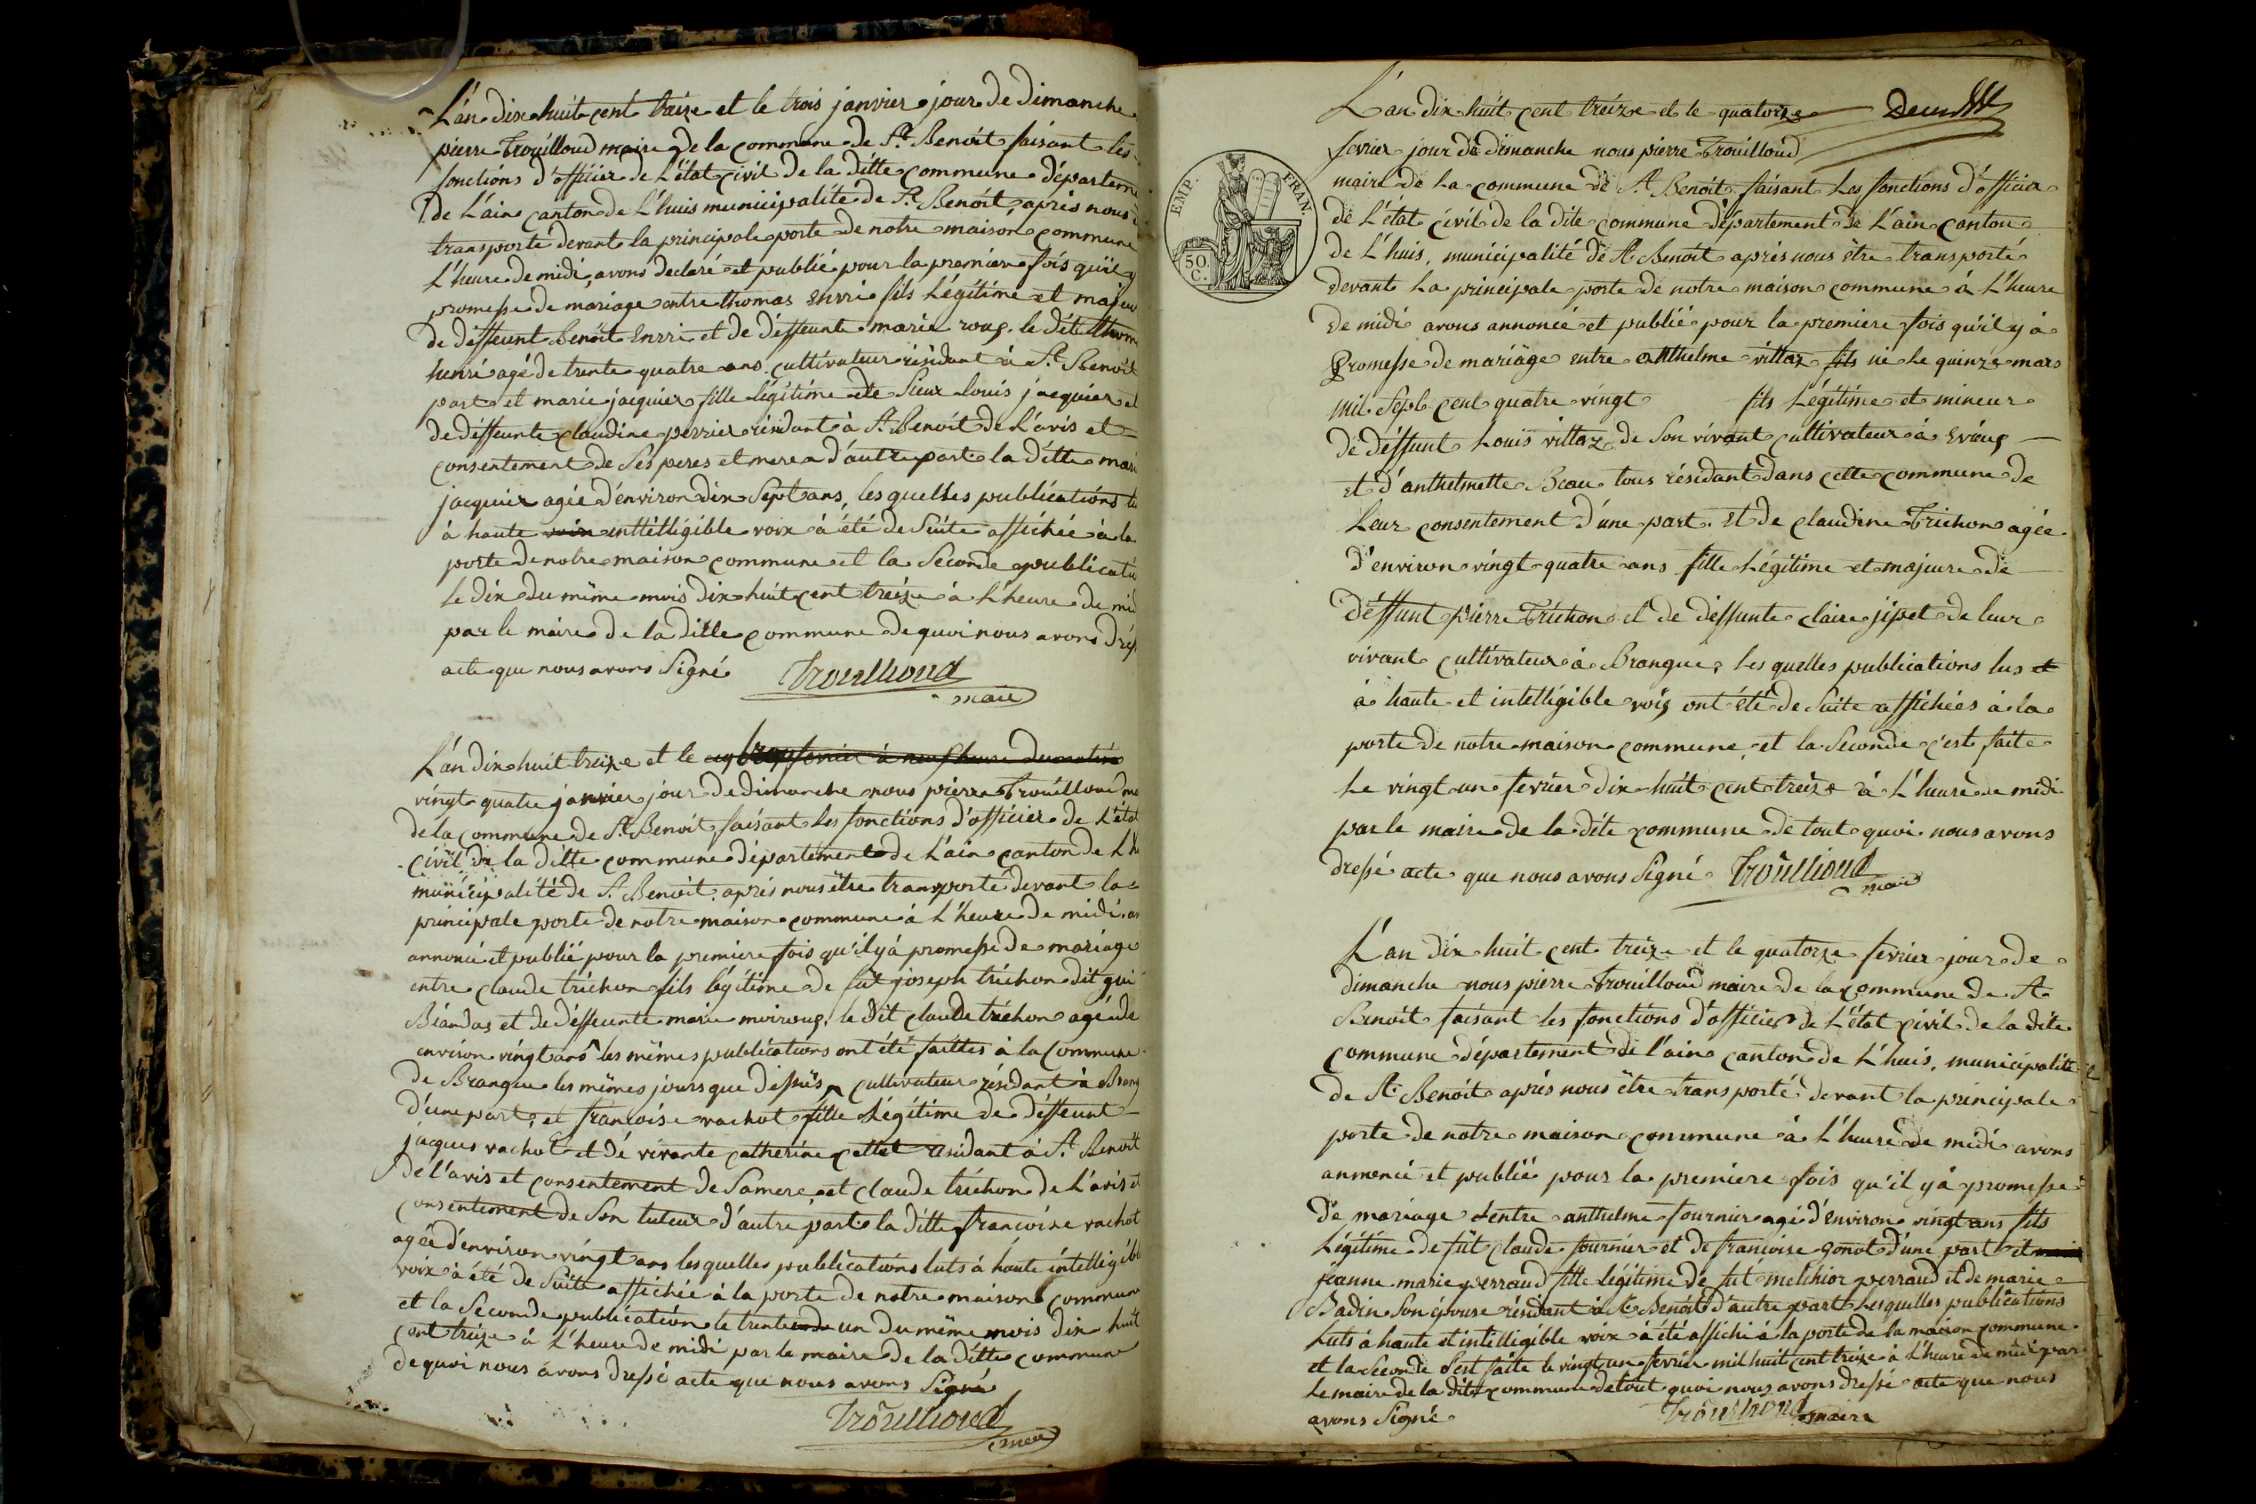 L'an dix huit cent treize et le trois janvier jour de dimanche
pierre Trouilloud maire de la commune de St. Benoit faisant les
fonctions d'officier de L'état civil de la ditte commune départeme
de L'ain canton de L'huis municipalité de St. Benoit, après nous
transporté devant la principale porte de notre maison commune
L'heure de midi, avons declaré et publié pour la premiere fois qu'il y
promesse de mariage entre thomas Enrri fils Légitime et majeur
de deffeunt Benoit Enrri et de deffeunte marie roug. le dit thom
henri agé de trente quatre ans cultivateur résidant à St. Benoit
part et marie jacquier fille légitime de Sieur Louis jacquier et
de deffeunte Claudine perrier résidant à St. Benoit de L'avis et
consentement de Ses peres et mere d'autre part la ditte mari
jacquier agée d'environ dix Sept ans, les quelles publications lu
à haute voix inttelligible voix à été de Suite affichée à la
porte de notre maison commune et la Seconde publicatio
Le dix du même mois dix huit cent treize à L'heure de mid
par le maire de la ditte commune de quoi nous avons dres
acte que nous avons Signé Trouilloud
maire
L'an dix huit treize et le fevrier à neuf heure du matin
vingt quatre janvier jour de dimanche nous pierre Trouilloud ma
de la commune de St. Benoit, faisant les fonctions d'officier de L'état
civil de la ditte commune département de L'ain canton de L'hu
municipalité de St. Benoit. après nous être transporté devant la
principale porte de notre maison commune à L'heure de midi. av
annoncé et publié pour la premiere fois qu'il y à promesse de mariage
entre claude trichon fils légitime de fut joseph trichon dit gui
Biandas et de deffeunte marie moiroug. le dit claude trichon agé de
environ vingt ans les mêmes publications ont été faittes à la commune
de Brangue les mêmes jours que dessus cultivateur résidant à Brang
d'une part, et francoise vachot fille Légitime de deffeunt
jacques vachot et de vivante catherine cattet residant à St. Benoit
de l'avis et consentement de Sa mere, et claude trichon de L'avis et
consentement de Son tuteur d'autre part la ditte francoise vachot
agée d'environ vingt ans lesquelles publications luts à haute intelligibl
voix à été de Suite affichée à la porte de notre maison commun
et la Seconde publication le trente un du même mois dix huit
cent treize à L'heure de midi par le maire de la ditte commune
de quoi nous avons dressé acte que nous avons Signé
Trouilloud
maire
L'an dix huit cent treize et le quatorze
fevrier jour de dimanche nous pierre Trouilloud
maire de La commune de St. Benoit faisant Les fonctions d'officier
de L'état civil de la dite commune département de L'ain canton
de L'huis, municipalité de St. Benoit après nous être transporté
devant La principale porte de notre maison commune à L'heure
de midi avons annoncé et publié pour la premiere fois qu'il y à
Promesse de mariage entre anthelme villaz fils né Le quinze mars
Mil Sept cent quatre vingt fils Légitime et mineur
de deffunt Louis villaz de Son vivant cultivateur à Evieug
et d'anthelmette Beau tous résidant dans cette commune de
Leur consentement d'une part. et de claudine Trichon agée
d'environ vingt quatre ans fille Légitime et majeure de
deffunt pierre Trichon et de deffunte claire jipet de leur
vivant cultivateur à Brangue, les quelles publications lus et
à haute et intelligible voix ont été de Suite affichées à la
porte de notre maison commune, et la Seconde c'est faite
Le vingt un fevrier dix huit cent treize à L'heure de midi
par le maire de la dite commune de tout quoi nous avons
dressé acte que nous avons Signé Trouilloud
maire
EMP. FRAN.
50.
C.
L'an dix huit cent treize et le quatorze fevrier jour de
dimanche nous pierre Trouilloud maire de la commune de St
Benoit faisant les fonctions d'officier de L'état civil de la dite
commune département de l'ain canton de L'huis, municipalité
de St. Benoit après nous être transporté devant la principale
porte de notre maison commune à L'heure de midi avons
annoncé et publié pour la premiere fois qu'il y à promesse
de mariage dentre anthelme fournier agé d'environ vingt ans fils
Légitime de fût claude fournier et de francoise gonot d'une part et
jeanne marie perraud fille légitime de fut melchior perraud et de marie
Badin Son épouse résidant à St Benoit d'autre part Lesquelles publications
Luts à haute et intelligible voix à été affiché à la porte de la maison commune
et la Seconde S'est faite le vingt un fevrier mil huit cent treize à L'heure de midi par
Le maire de la dite commune de tout quoi nous avons dressé acte que nous
avons Signé Trouilloud maire